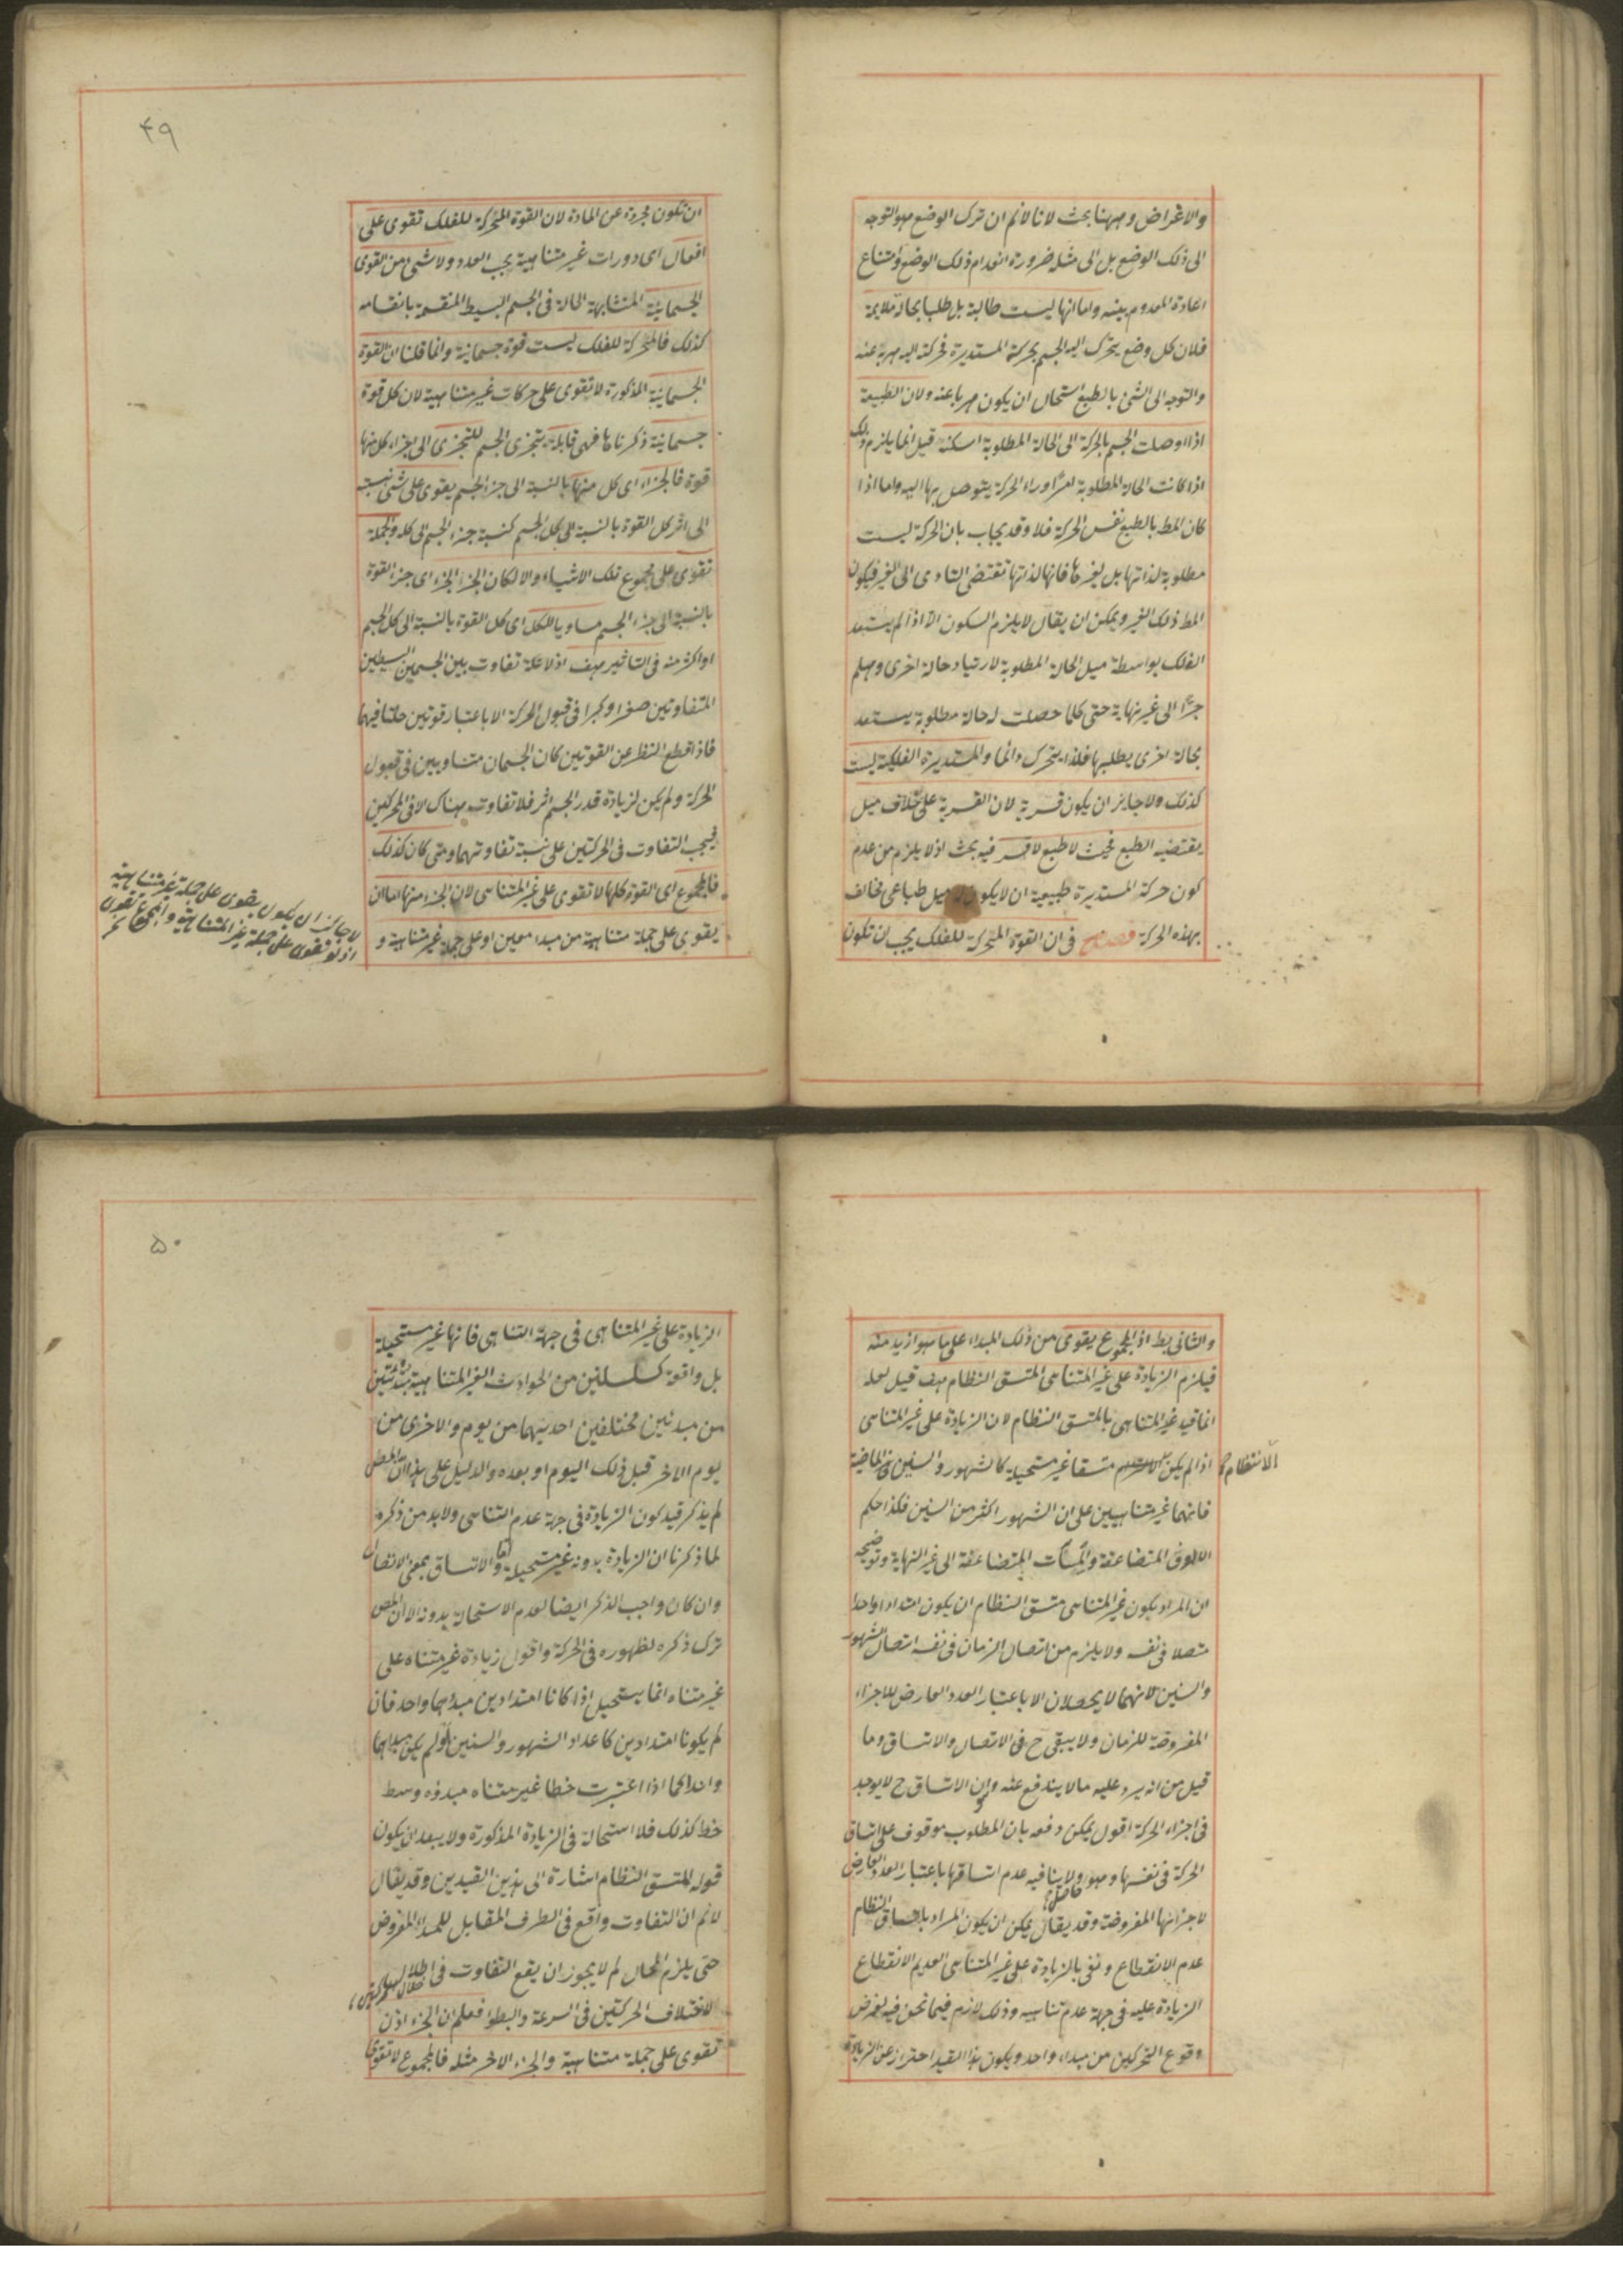 والاغراض وههنا بحث لانا لانم ان ترك الوضع هو التوجه
الى ذلك الوضع بل الى مثله ضرورة انعدام ذلك الوضع وامتناع
اعادة المعدوم بعينه واما انها ليست طالبة بل طلبا بحالة ملايمة
فلان كل وضع يتحرك اليه الجسم بحركة المستديرة فحركته اليه هربة عنه
والتوجه الى الشئ بالطبع استحال ان يكون هربا عنه ولان الطبيعة
اذا اوصلت الجسم بالحركة الى الحالة المطلوبة اسكنته قيل انما يلزم ذلك
اذا كانت الحالة المطلوبة امرا وراء الحركة يتوصل بها اليه واما اذا
كان المط بالطبع نفس الحركة فلا وقد يجاب بان الحركة ليست
مطلوبة لذاتها بل لغيرها فانها لذاتها تقتضى التادى الى الغير فيكون
المط ذلك الغير ويمكن ان يقال لا يلزم السكون الا اذا لم يستعد
الفلك بواسطة ميل الحالة المطلوبة لارتياد حالة اخرى وهلم
جرا الى غير نهاية حتى كلما حصلت له حالة مطلوبة يستعد
بحالة اخرى يطلبها فلذا يتحرك دائما والمستديرة الفلكية ليست
كذلك ولا جايز ان يكون قسرية لان القسرية على خلاف ميل
يقتضيه الطبع فحيث لا طبع لا قسر فيه بحث اذ لا يلزم من عدم
كون حركة المستديرة طبيعية ان لا يكون له ميل طباعى مخالف
بهذه الحركة فصل فى ان القوة المتحركة للفلك يجب ان تكون
٤٩
ان تكون مجردة عن المادة لان القوة المتحركة للفلك تقوى على
افعال اى دورات غير متناهية بحسب العدد ولا شئ من القوى
الجسمانية المتشابهة الحالة فى الجسم البسيط المنقسمة بانقسامه
كذلك فالمتحركة للفلك ليست قوة جسمانية وانما قلنا ان القوة
الجسمانية المذكورة لا تقوى على حركات غير متناهية لان كل قوة
جسمانية ذكرناها فهى قابلة بتجزى الجسم للتجزى الى اجزاء كل منها
قوة فالجزء اى كل منها بالنسبة الى جزء الجسم يقوى على شئ نسبته
الى اثر كل القوة بالنسبة الى كل الجسم كنسبة جزء الجسم الى كله والجملة
تقوى على مجموع تلك الاشياء والا لكان الجزء الجزء اى جزء القوة
بالنسبة الى جزء الجسم مساويا للكل اى كل القوة بالنسبة الى كل الجسم
او اكثر منه فى التاثير هف اذ لا علة تفاوت بين الجسمين البسيطين
المتفاوتين صغرا وكبرا فى قبول الحركة الا باعتبار قوتين حلتا فيهما
فاذا قطع النظر عن القوتين كان الجسمان متساويين فى قبول
الحركة ولم يكن لزيادة قدر الجسم اثر فلا تفاوت هناك الا فى المحركين
فيجب التفاوت فى الحركتين على نسبة تفاوتهما ومتى كان كذلك
فالمجموع اى القوة كلها لا تقوى على غير المتناهى لان الجزء منها اما ان
يقوى على جملة متناهية من مبدا معين او على جملة غير متناهية و
لا جائز ان يكون يقوى على جملة غير متناهية
اذ لو تقوى على جملة غير المتناهية والمجموع تقوى
والثانى بط اذ المجموع يقوى من ذلك المبداء على ما هو ازيد منه
فيلزم الزيادة على غير المتناهى المتسق النظام هف قيل لعله
انما قيد غير المتناهى بالمتسق النظام لان الزيادة على غير المتناهى
اذا لم يكن متسقا غير مستحيلة كالشهور والسنين الماضية
الانتظام
فانهما غير متناهيين على ان الشهور اكثر من السنين فكذا حكم
الالوف المتضاعفة والمئات المتضاعفة الى غير النهاية وتوضيحه
ان المراد بكون غير المتناهى متسق النظام ان يكون امتدادا واحدا
متصلا فى نفسه ولا يلزم من اتصال الزمان فى نفسه اتصال الشهور
والسنين لانهما لا يحصلان الا باعتبار العدد العارض للاجزاء
المفروضة للزمان ولا يبقى ح فى الاتصال والاتساق وما
قيل من انه يرد عليه ما لا يندفع عنه وان الاتساق ح لا يوجد
فى اجزاء الحركة اقول يمكن دفعه بان المطلوب موقوف على اتساق
الحركة فى نفسها وهو حاصل ولا ينافيه عدم اتساقها باعتبار العدد العارض
لاجزائها المفروضة وقد يقال يمكن ان يكون المراد باتساق النظام
عدم الانقطاع ونفى بالزيادة على غير المتناهى العديم الانقطاع
الزيادة عليه فى جهة عدم تناهيه وذلك لازم فيما نحن فيه لفرض
وقوع التحركين من مبداء واحد ويكون هذا القيد احتراز عن الزيادة
٥٠
الزيادة على غير المتناهى فى جهة التناهى فانها غير مستحيلة
بل واقعة كسلسلتين من الحوادث الغير المتناهية مبتدئتين
من مبدئين مختلفين احديهما من يوم والاخرى من
يوم الاخر قبل ذلك اليوم او بعده والدليل على هذا ان المص
لم يذكر قيد كون الزيادة فى جهة عدم التناهى ولابد من ذكره
لما ذكرنا ان الزيادة بدونه غير مستحيلة واما الاتساق بمعنى الاتصال
وان كان واجب الذكر ايضا لعدم الاستحالة بدونه الا ان المص
ترك ذكره لظهوره فى الحركة واقول زيادة غير متناه على
غير متناه انما يستحيل اذا كانا امتدادين مبدؤهما واحد فان
لم يكونا امتدادين كاعداد الشهور والسنين او لم يكن مبداهما
واحدا كما اذا اعتبرت خطا غير متناه مبدؤه وسط
خط كذلك فلا استحالة فى الزيادة المذكورة ولا يبعد ان يكون
قوله المتسق النظام اشارة الى هذين القيدين وقد يقال
لانم ان التفاوت واقع فى الطرف المقابل للمبداء المفروض
حتى يلزم المحال لم لا يجوز ان يقع التفاوت فى خلال
لاختلاف الحركتين فى السرعة والبطوء فعلم ان الجزء اذن
تقوى على جملة متناهية والجزء الاخر مثله فالمجموع لا تقوى